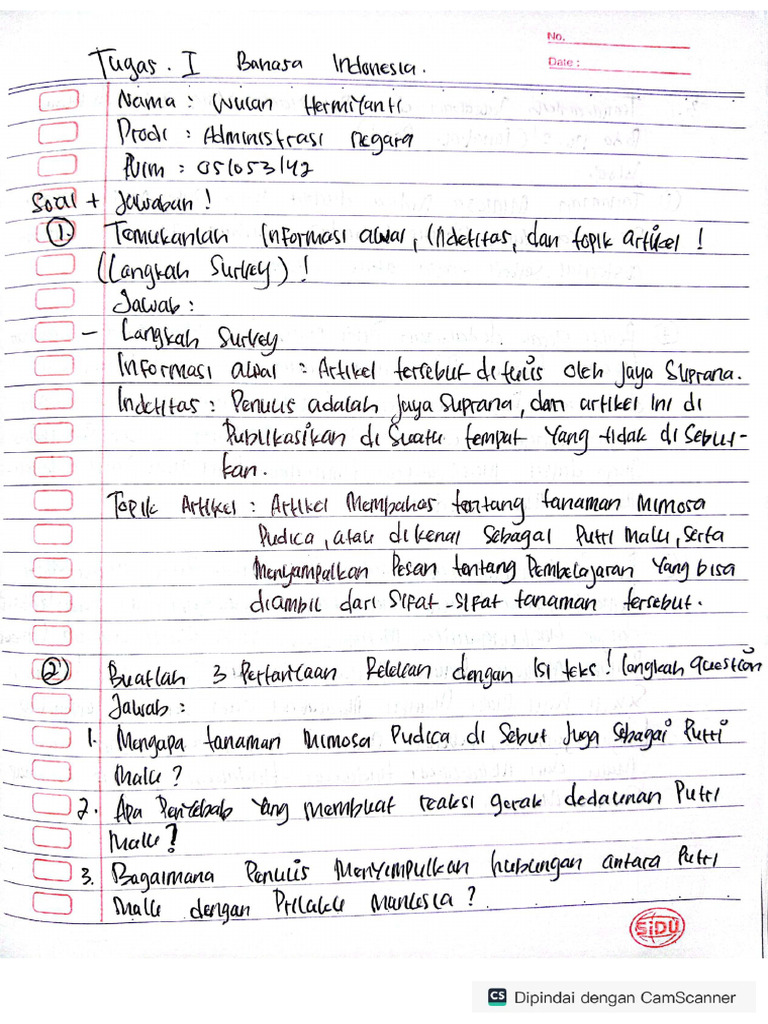 No.
Date :
Tugas. I Bahasa Indonesia.
Nama : Wulan Hermiyanti
Prodi : Administrasi negara
Nim : 051053142
Soal + Jawaban !
1. Temukanlah Informasi awal, Indetitas, dan topik artikel !
(Langkah Survey) !
Jawab :
- Langkah Survey
Informasi awal : Artikel tersebut di tulis oleh Jaya Suprana.
Indetitas : Penulis adalah Jaya Suprana, dan artikel ini di
Publikasikan di Suatu tempat yang tidak di sebut-
kan.
Topik Artikel : Artikel Membahas tentang tanaman Mimosa
Pudica, atau di kenal sebagai Putri Malu, serta
Menyampaikan Pesan tentang Pembelajaran yang bisa
diambil dari Sifat-Sifat tanaman tersebut.
2 Buatlah 3 Pertanyaan Relevan dengan Isi teks ! langkah question
Jawab :
1. Mengapa tanaman Mimosa Pudica di Sebut Juga Sebagai Putri
Malu ?
2. Apa Penyebab yang membuat reaksi gerak dedaunan Putri
Malu ?
3. Bagaimana Penulis Menyimpulkan hubungan antara Putri
Malu dengan Prilaku Manusia ?
SiDU
CS Dipindai dengan CamScanner